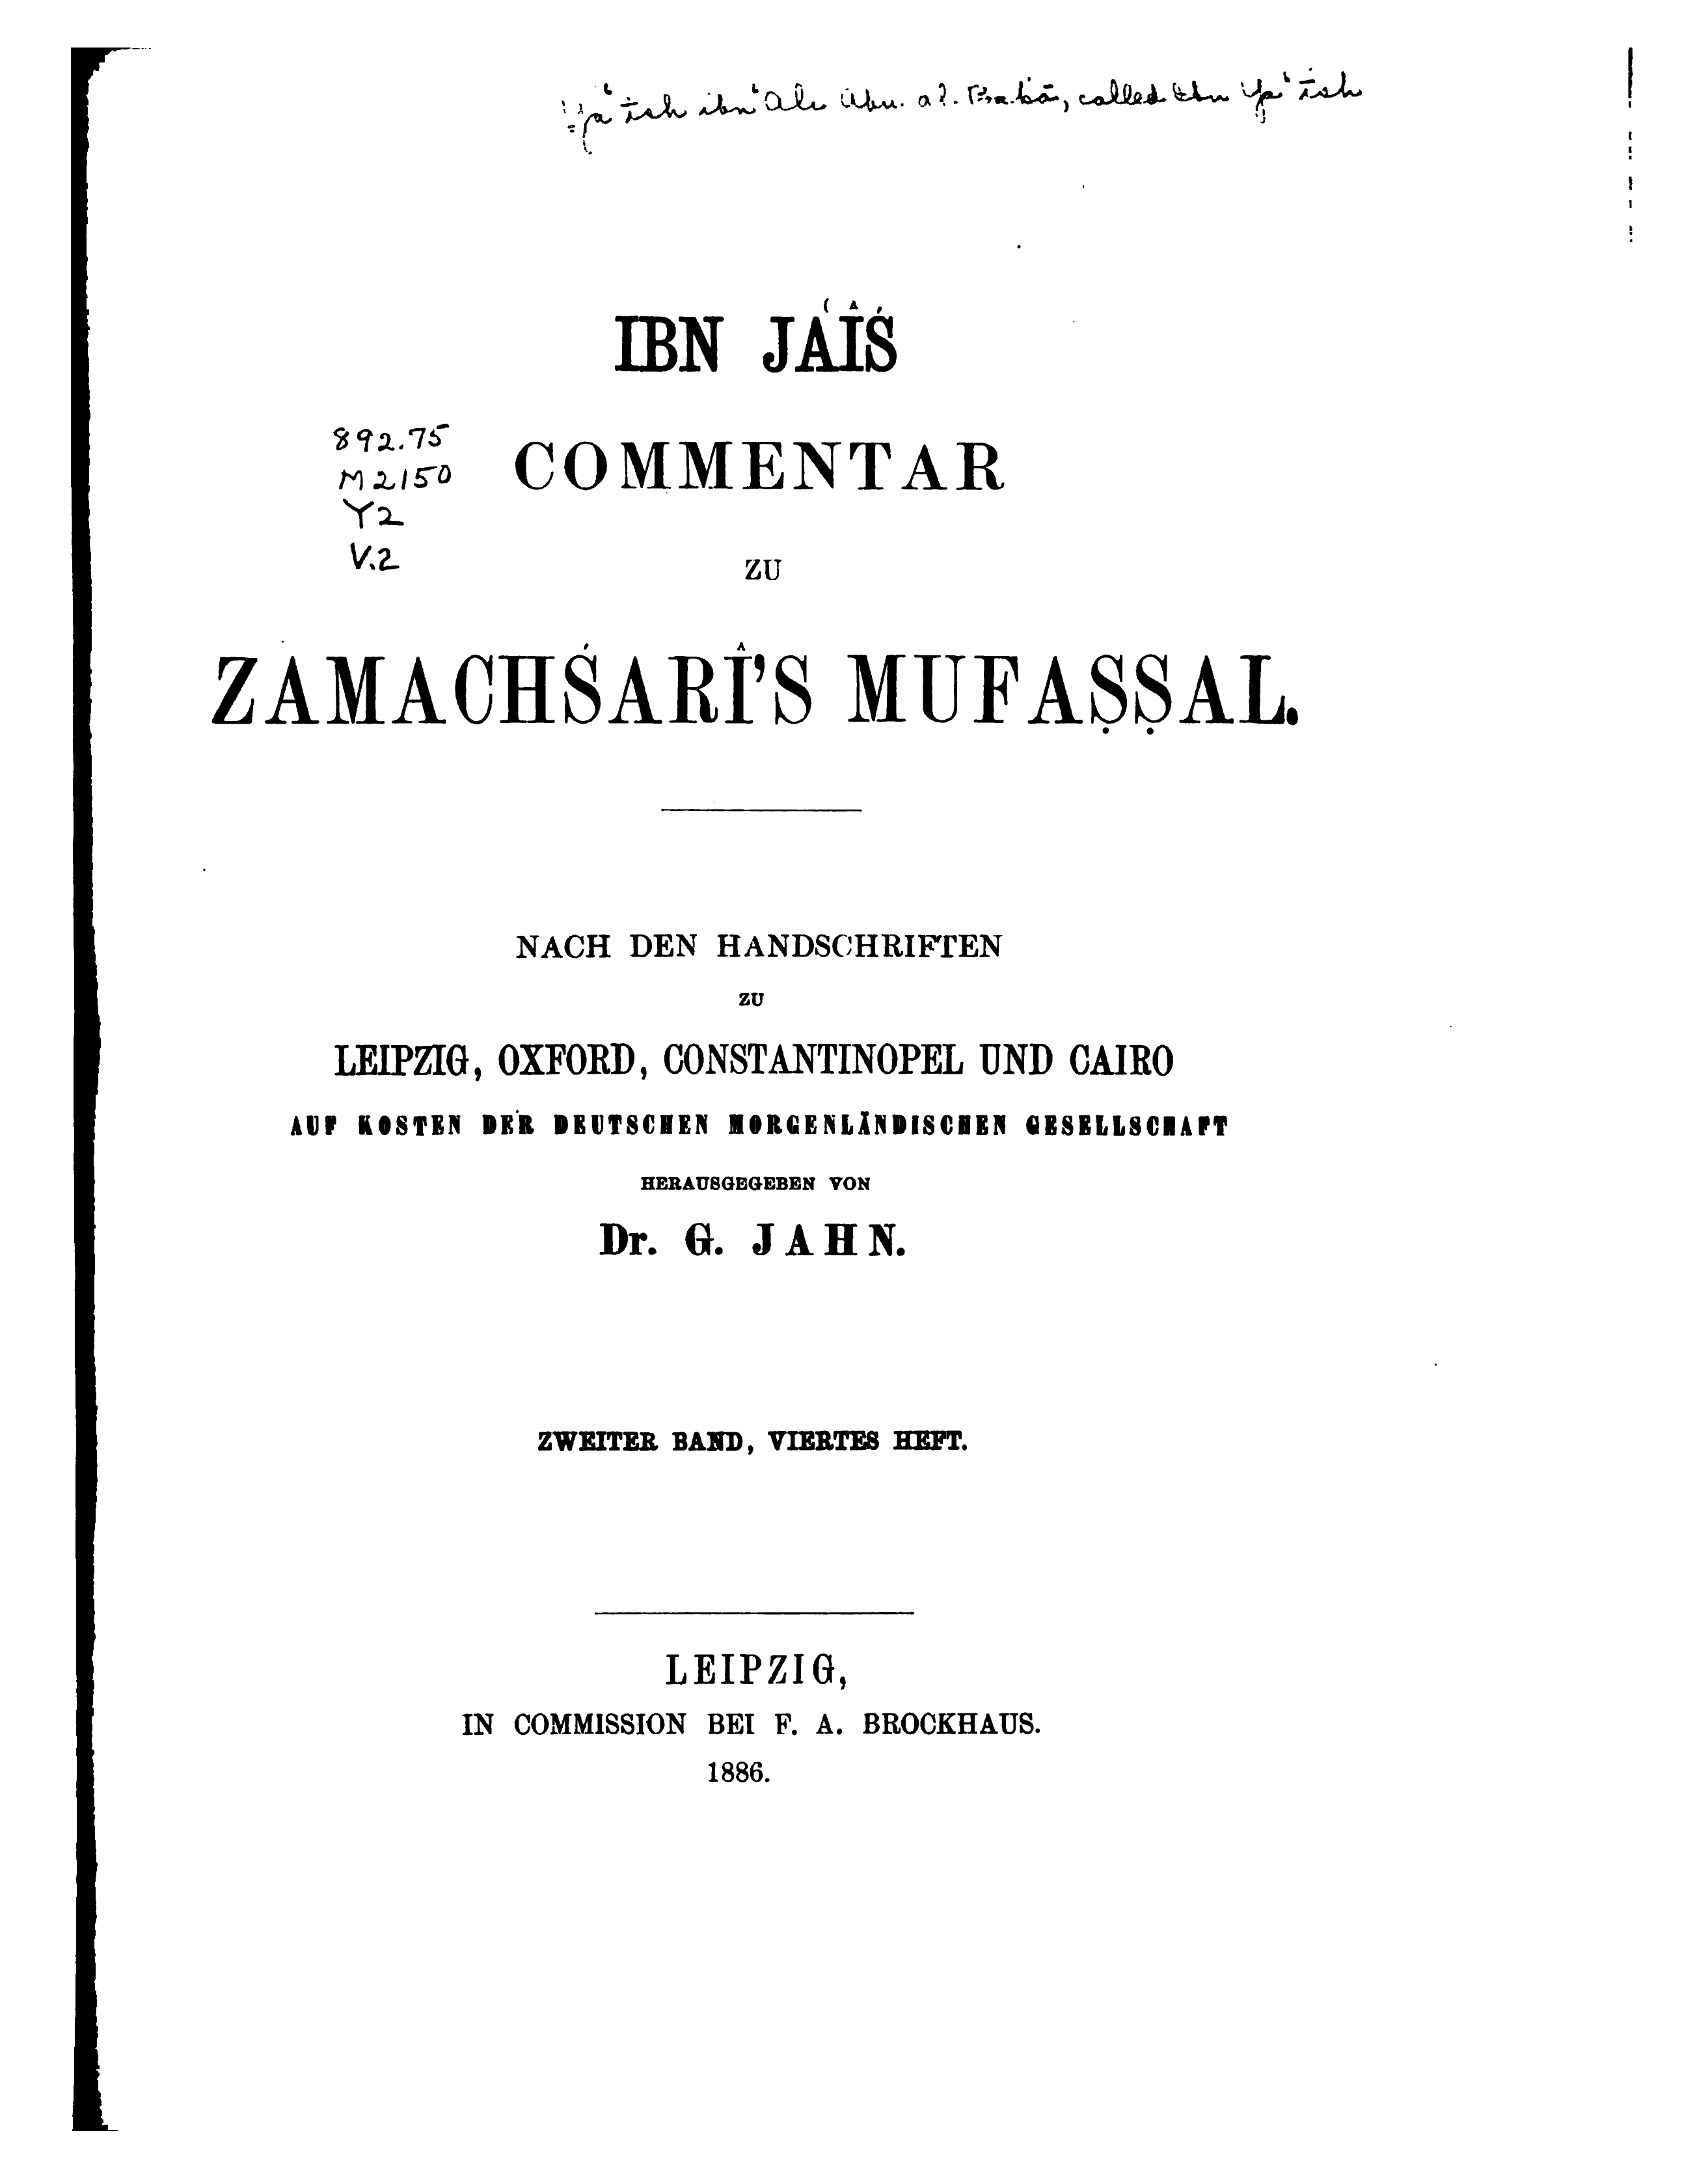 Ya‘īsh ibn ‘Alī Abu. al. Bakā, called Ibn Ya‘īsh
IBN JAʿÎŚ
892.75
M2150
Y2
V.2
COMMENTAR
ZU
ZAMACHŚARÎ'S MUFAṢṢAL.
NACH DEN HANDSCHRIFTEN
ZU
LEIPZIG, OXFORD, CONSTANTINOPEL UND CAIRO
AUF KOSTEN DER DEUTSCHEN MORGENLÄNDISCHEN GESELLSCHAFT
HERAUSGEGEBEN VON
Dr. G. JAHN.
ZWEITER BAND, VIERTES HEFT.
LEIPZIG,
IN COMMISSION BEI F. A. BROCKHAUS.
1886.